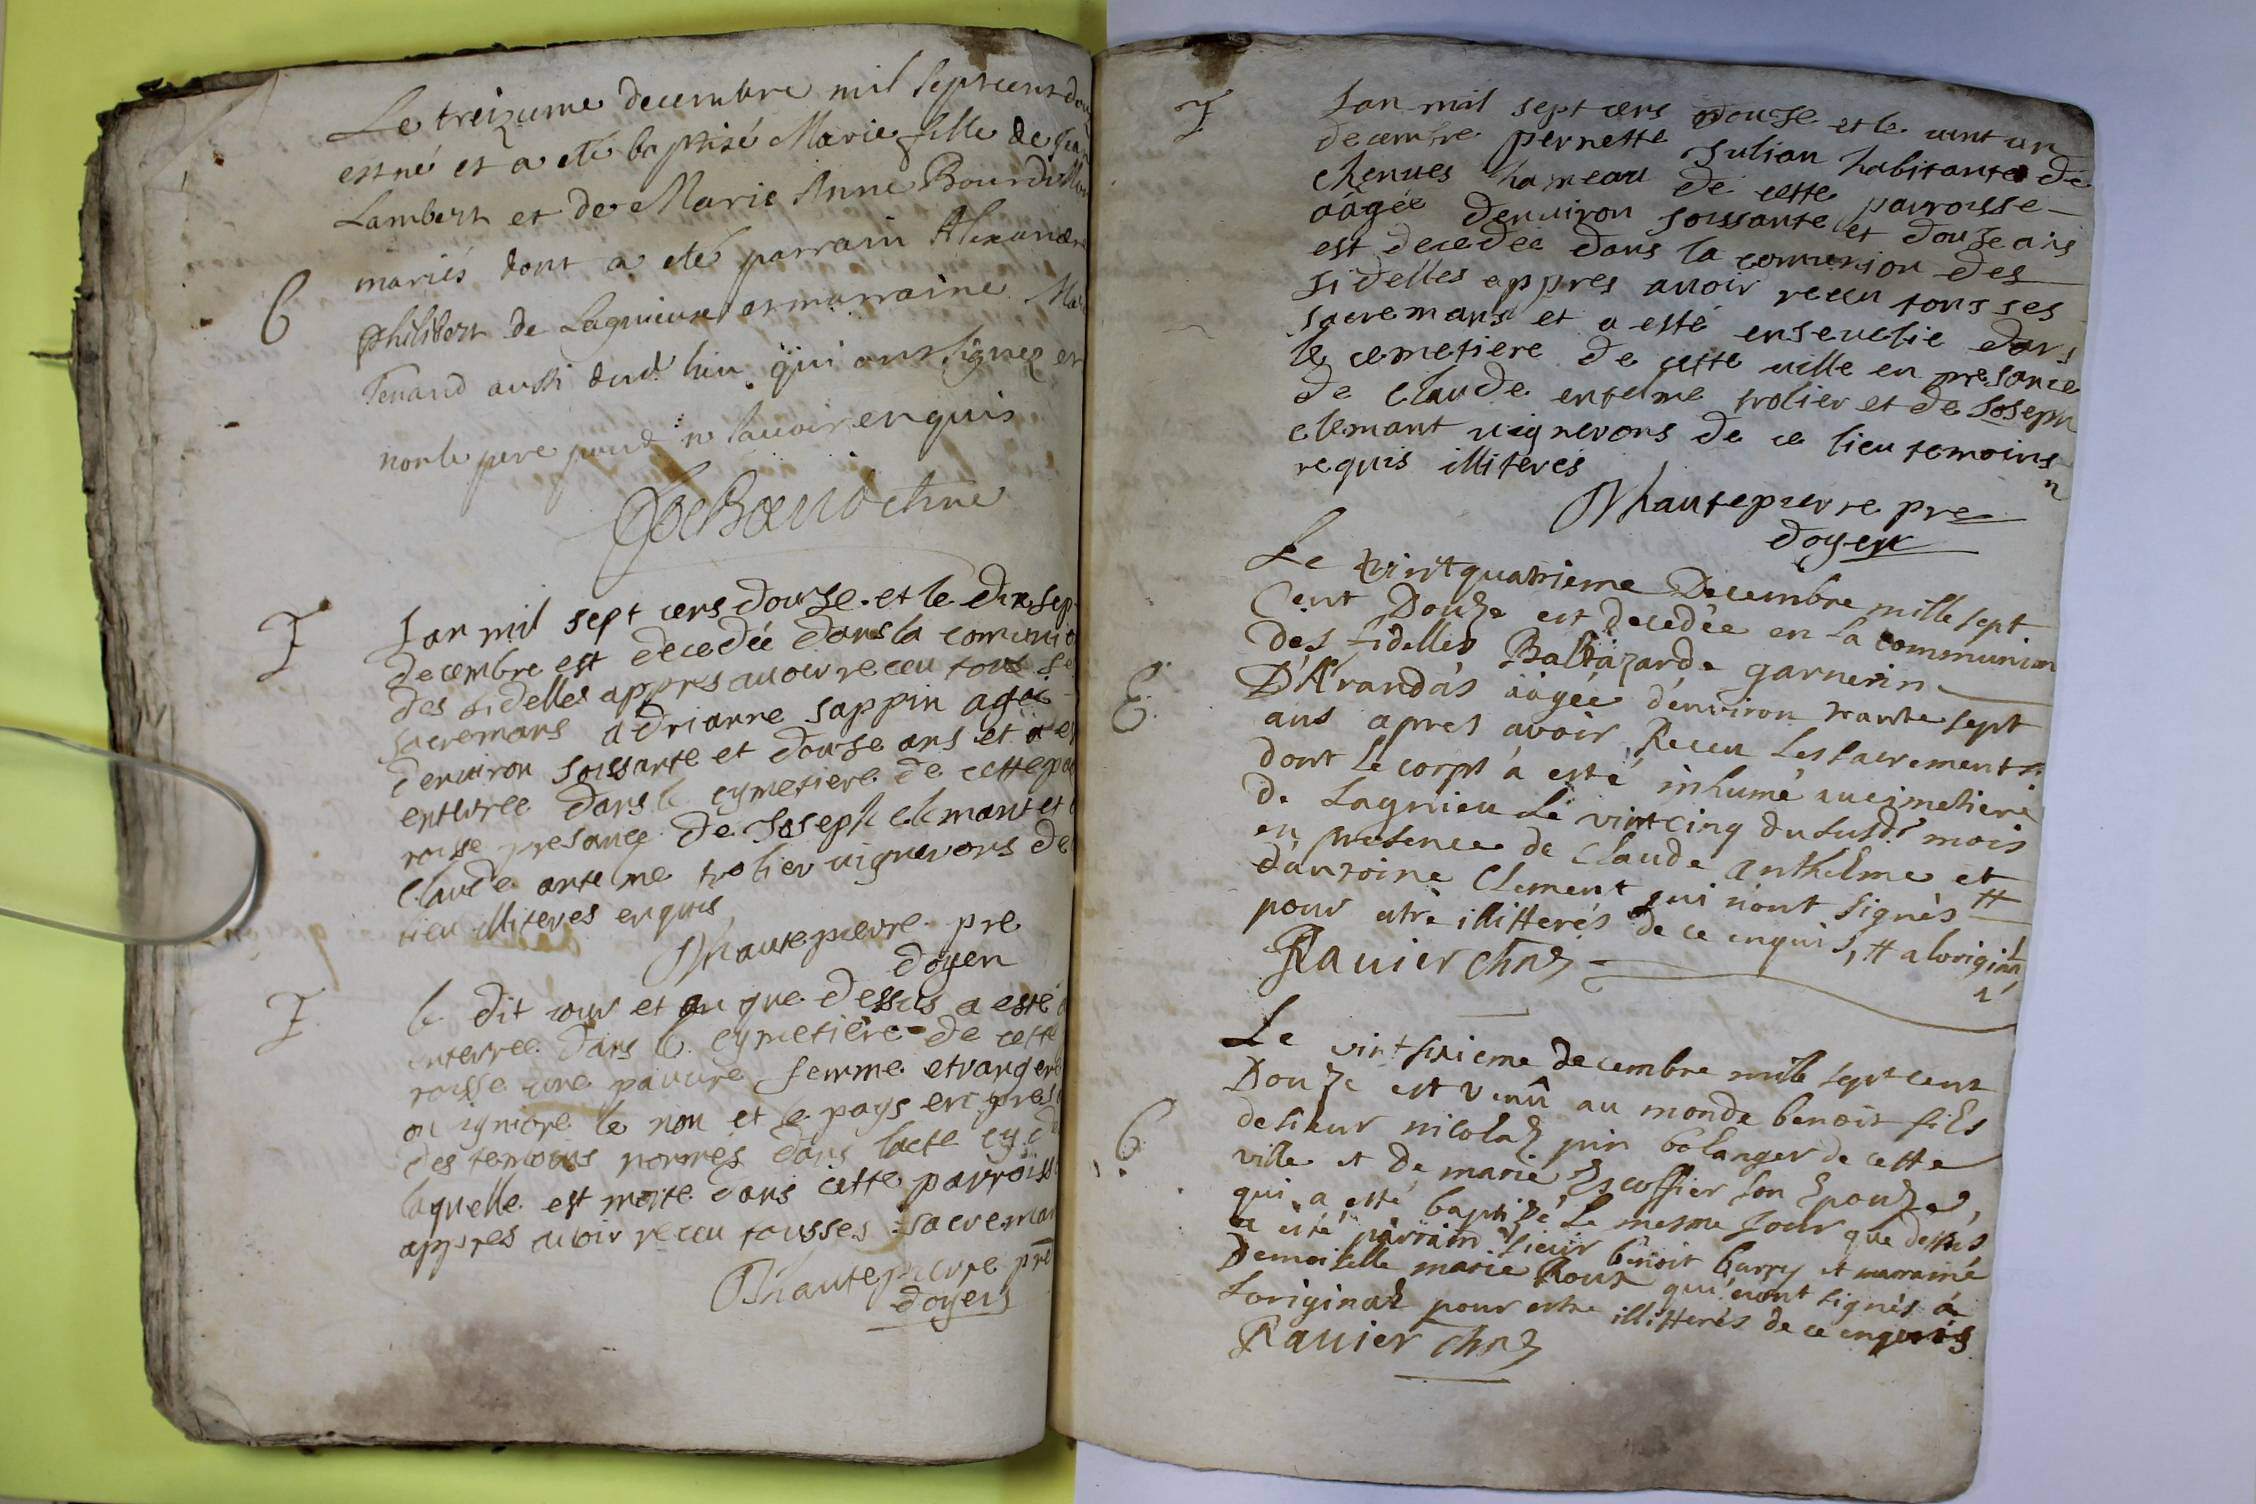 Le treizieme decembre mil septcent dou
est né et a eté baptisé Marie fille de Jean
Lambert et de Marie Anne Bourdillon
mariés dont a eté parrain Alexandre
B
philibert de Lagnieux et marraine Mar
Tenand aussi dud lieu qui ont signez et
non le pere pour ne scavoir enquis
F
Lan mil sept cens douse et le dix sep
decembre est decedée dans la comunio
des fidelles appres avoir receu tous se
sacremans adrianne sappin agée
denviron soissante et douse ans et a e
enterree dans le cymetiere de cette pa
roisse presance de Joseph clemant et
Claude anteme trolier vignerons de
lieu illiteres enquis
Dhautepierre pre
doyen
F
le dit jour et an que dessus a esté
enterree dans le cymetiere de cette
roisse une pauvre femme etrangere
on ignore le nom et le pays en pres
des temoins nommés dans lacte cy d
laquelle est morte dans cette parroiss
appres avoir receu tousses sacreman
Dhautepierre pre
doyen
F
Lan mil sept cens douse et le vint un
decembre pernette Julian habitante de
chenues hameau de cette parroisse
aagée denviron soissante et douse ans
est decedée dans la comunion des
fidelles appres avoir receu tous ses
sacremans et a esté ensevelie dans
le cemetiere de cette ville en presance
de claude entelme trolier et de Joseph
clemant vignerons de ce lieu temoins
requis illiteres
Dhautepierre pre
doyen
Le vint quatrieme Decembre mille sept
Cent Douze est decedée en la communion
des fidelles Baltazarde garnerin
D'Arandas aagée d'environ trante sept
ans apres avoir Receu les sacrements
dont le corps a esté inhumé au cimetiere
de Lagnieu le vint cinq du susdt mois
en presence de claude anthelme et
d'antoine Clement qui n'ont signés #
pour estre illitterés de ce enquis, # a loriginl
Ravier
Le vint sixieme decembre mille sept cent
Douze est venû au monde benoit fils
de sieur nicolas pin bolanger de cette
B
ville et de marie Escoffier son Epouze,
qui a esté baptizé le mesme jour que dessus
a eté parrain sieur benoit barry et marraine
Demoiselle marie Roux qui n'ont signés a
Loriginal pour estre illitterés de ce enquis
Ravier